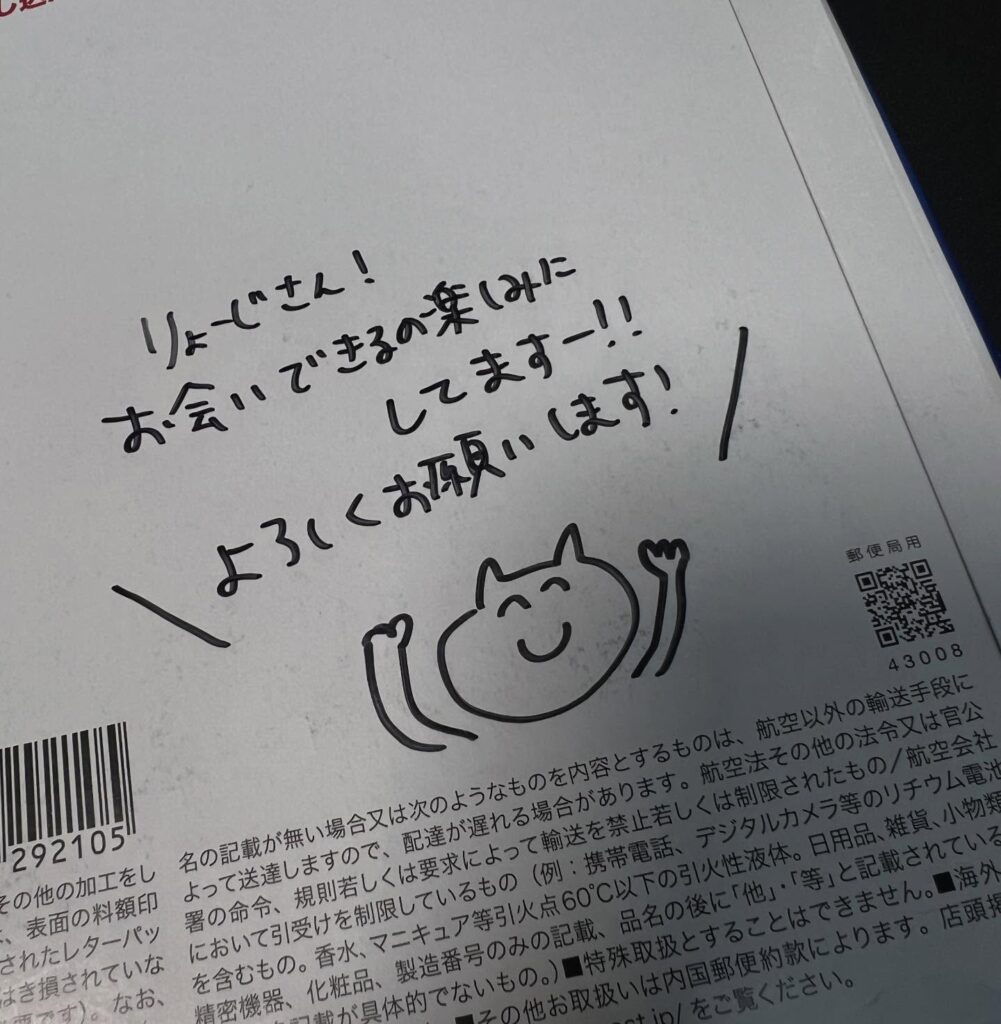 りょーじさん!
お会いできるの楽しみに
してますー!!
よろしくお願いします!
郵便局用
43008
292105
名の記載が無い場合又は次のようなものを内容とするものは、航空以外の輸送手段に
よって送達しますので、配達が遅れる場合があります。航空法その他の法令又は官公
署の命令、規則若しくは要求によって輸送を禁止若しくは制限されたもの/航空会社
において引受けを制限しているもの(例:携帯電話、デジタルカメラ等のリチウム電池
を含むもの。香水、マニキュア等引火点60℃以下の引火性液体。日用品、雑貨、小物類
精密機器、化粧品、製造番号のみの記載、品名の後に「他」・「等」と記載されている
記載が具体的でないもの。)■特殊取扱とすることはできません。■海外
■その他お取扱いは内国郵便約款によります。店頭
/をご覧ください。
その他の加工をし
、表面の料額印
されたレターパッ
はき損されていな
要です)。なお、